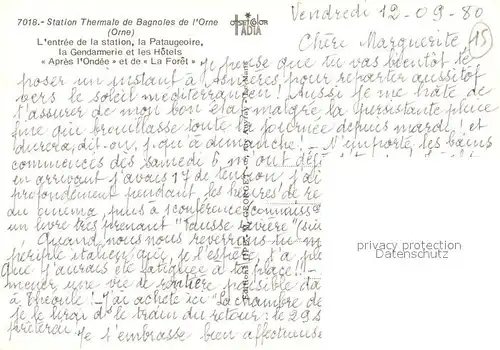 Vendredi 12-09-80
7018.- Station Thermale de Bagnoles de l'Orne
(Orne)
L'entrée de la station, la Pataugeoire,
la Gendarmerie et les Hôtels
« Après l'Ondée » et de « La Forêt »
OFSET COLOR
TADIA
Chère Marguerite
15
Je pense que tu vas bientôt te
poser un instant à Asnières, pour repartir aussitôt
vers le soleil méditerranéen ! Aussi je me hâte de
t'assurer de mon bon état malgré la persistante pluie
fine qui brouillasse toute la journée depuis mardi et
durera, dit-on, j. qu'à dimanche ! N'importe les bains
commencés dès samedi 6 m'ont
en arrivant j'avais 17 de tension
profondément pendant les heures de
du cinéma, plus à conférence
un livre très prenant "Fausse rivière"
Quand nous nous reverrons tu
périple italien que, je l'espère, t'a
Que j'aurais été fatiguée à ta place !
mener une vie de rentière paisible
à Théoule ! J'ai acheté ici "La chambre de
je le lirai ds le train du retour : le 29 s
prêterai
Je t'embrasse bien affectueuse
privacy protection
Datenschutz